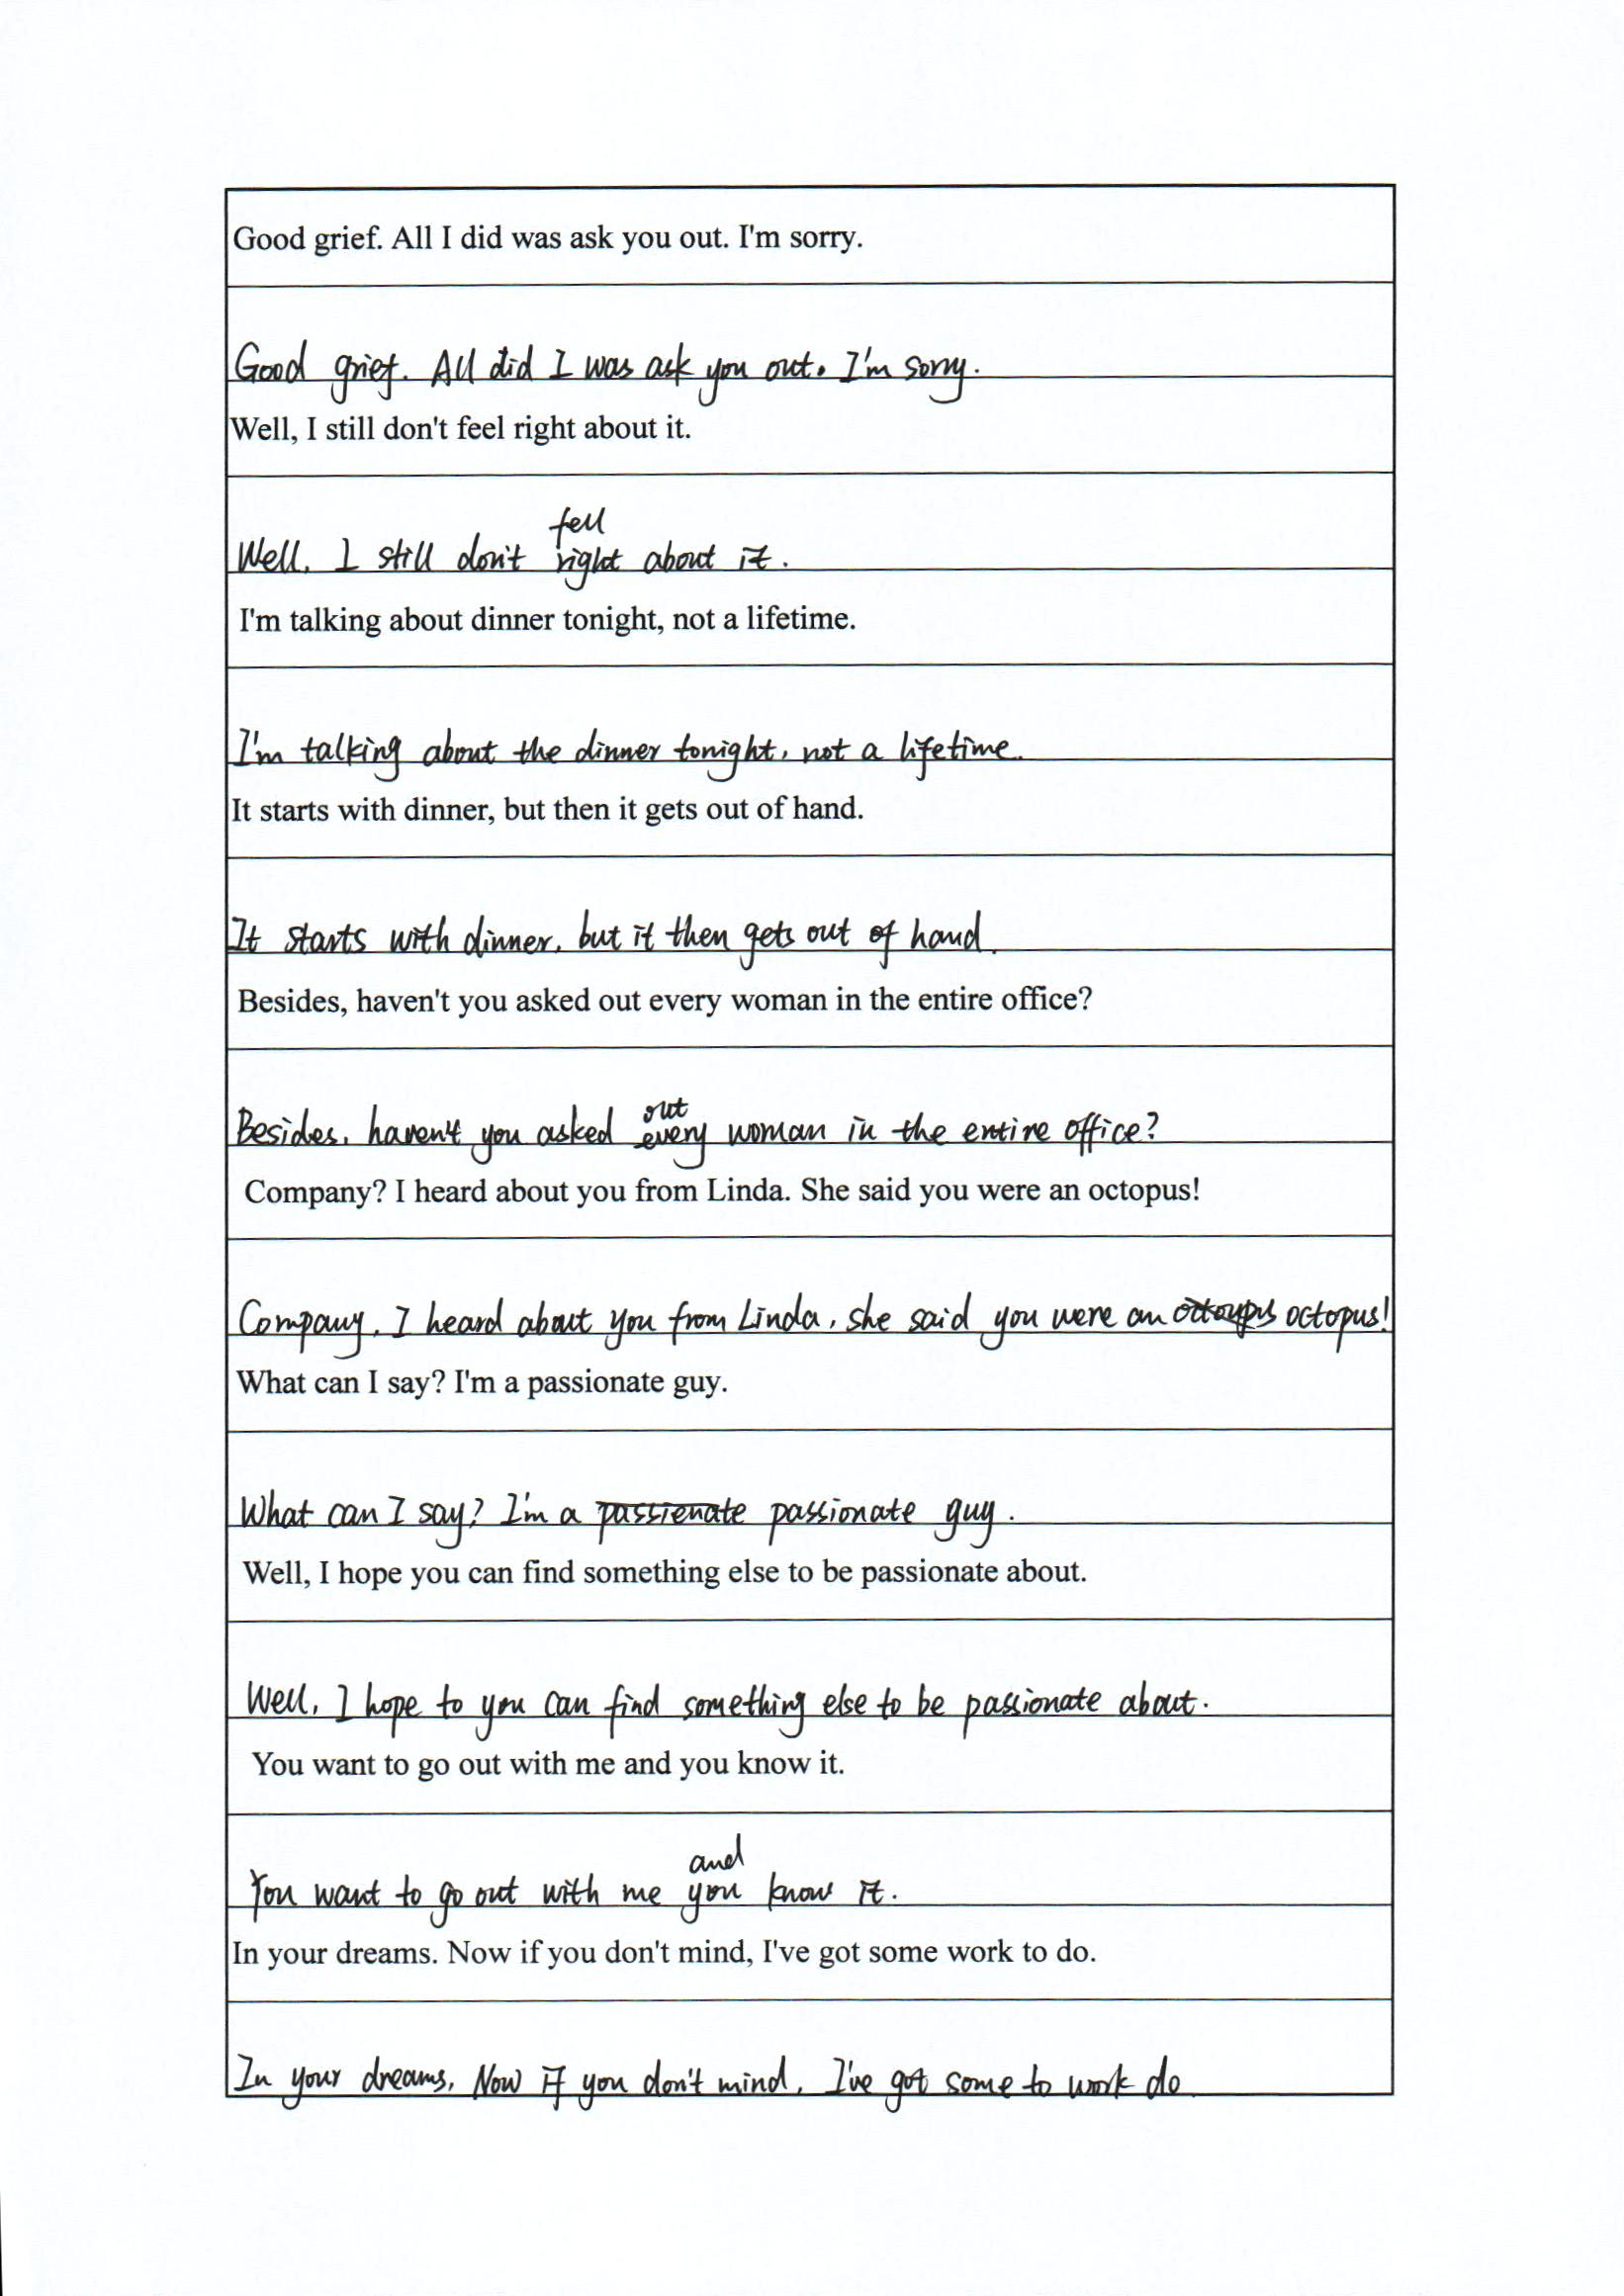 Good grief. All I did was ask you out. I'm sorry.
Good grief. All did I was ask you out. I'm sorry.
Well, I still don't feel right about it.
Well, I still don't fell right about it.
I'm talking about dinner tonight, not a lifetime.
I'm talking about the dinner tonight, not a lifetime.
It starts with dinner, but then it gets out of hand.
It starts with dinner, but it then gets out of hand.
Besides, haven't you asked out every woman in the entire office?
Besides, haven't you asked out every woman in the entire office?
Company? I heard about you from Linda. She said you were an octopus!
Company, I heard about you from Linda, she said you were an octopus!
What can I say? I'm a passionate guy.
What can I say? I'm a passionate guy.
Well, I hope you can find something else to be passionate about.
Well, I hope to you can find something else to be passionate about.
You want to go out with me and you know it.
You want to go out with me and you know it.
In your dreams. Now if you don't mind, I've got some work to do.
In your dreams, Now if you don't mind, I've got some to work do.